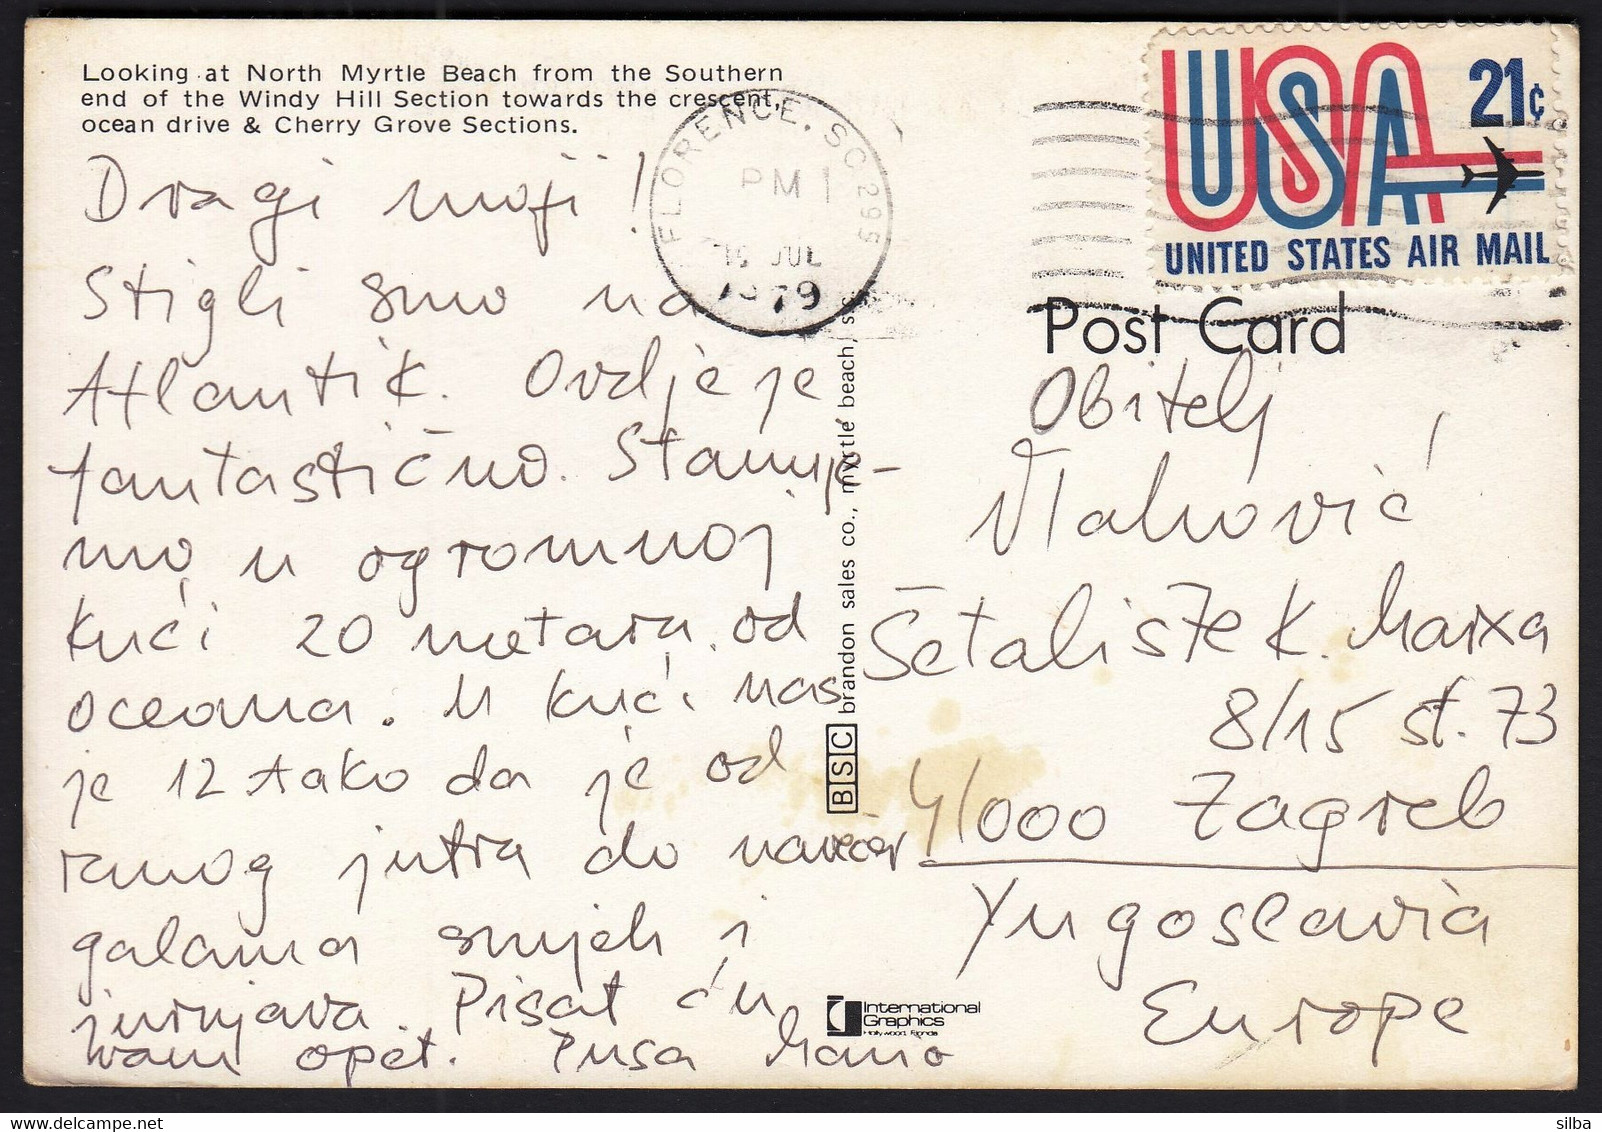 Looking at North Myrtle Beach from the Southern
end of the Windy Hill Section towards the crescent,
ocean drive & Cherry Grove Sections.
Dragi moji!
Stigli smo na
Atlantik. Ovdje je
fantastično. Stanuje-
mo u ogromnoj
kući 20 metara od
oceana. U kući nas
je 12 tako da je od
ranog jutra do navečer
galama smijeh i
jurnjava. Pisat ću
vam opet. Pusa
FLORENCE, SC 295
PM
JUL
1979
USA 21c
UNITED STATES AIR MAIL
Post Card
Obitelj
Vlahović
Šetalište K. Marxa
8/15 st. 73
41000 Zagreb
Yugoslavia
Europe
BSC brandon sales co., myrtle beach, s.c.
International
Graphics
Hollywood, Florida
delcampe.net
silba